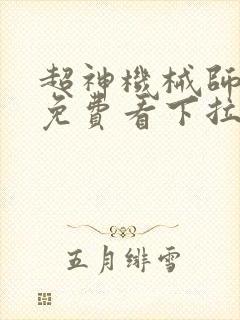 超神機械師
免費看下拉
五月緋雪